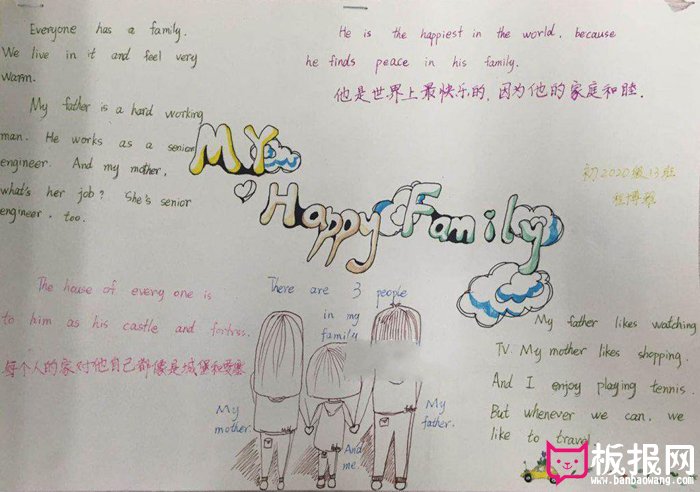 Everyone has a family.
We live in it and feel very
warm.
My father is a hard working
man. He works as a senior
engineer. And my mother,
what's her job? She's senior
engineer, too.
He is the happiest in the world, because
he finds peace in his family.
他是世界上最快乐的,因为他的家庭和睦.
My
Happy Family
初2020级13班
The house of every one is
to him as his castle and fortress.
每个人的家对他自己都像是城堡和要塞
There are 3 people
in my
family
My
mother.
And
me.
My
father.
My father likes watching
TV. My mother likes shopping.
And I enjoy playing tennis.
But whenever we can, we
like to travel.
板报网
www.banbaowang.com